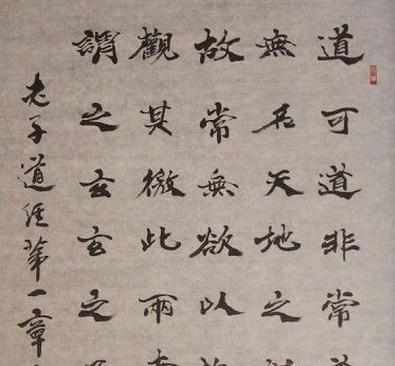 道可道非常
無名天地之
故常無欲以
觀其徼此兩
謂之玄玄之
老子道經第一章